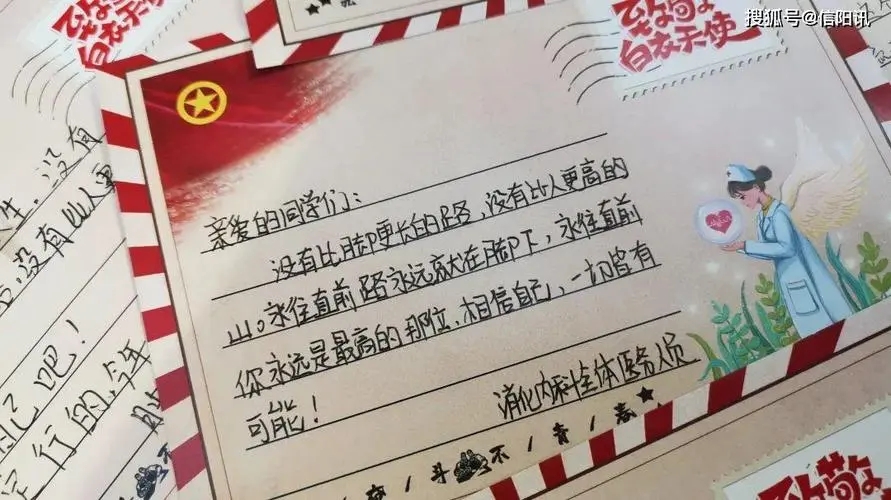 搜狐号@信阳讯
致敬
白衣天使
致敬
白衣天使
亲爱的同学们：
没有比脚更长的路，没有比人更高的
山。永往直前路永远放在脚下，永往直前
你永远是最高的那位，相信自己，一切皆有
可能！
消化内科全体医务人员
奋/斗 不/青/春/★
没有
没有比人更
吧！
行的，年
致敬